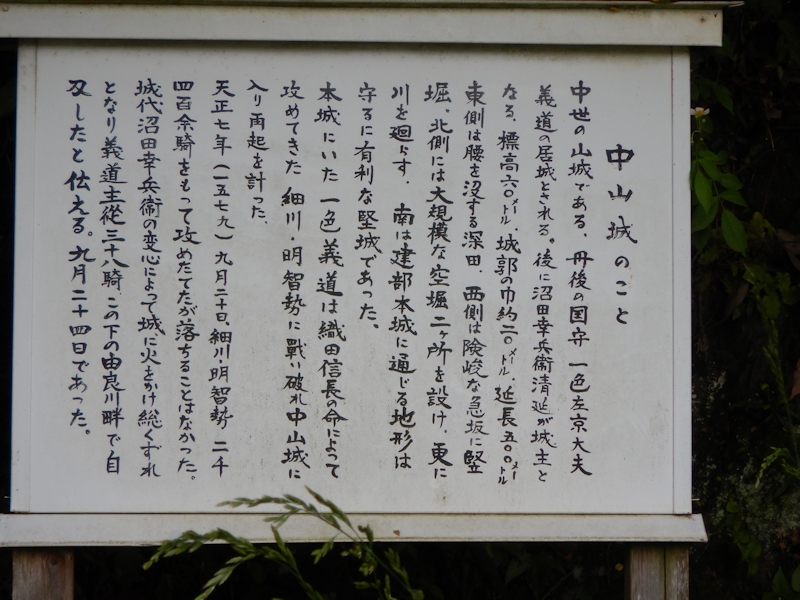 中山城のこと
中世の山城である、丹後の国守 一色左京大夫
義道の居城とされる。後に沼田幸兵衛清延が城主と
なる、標高六〇メートル、城郭の巾約二〇メートル、延長五〇〇メートル
東側は腰を没する深田、西側は険峻な急坂に竪
堀、北側には大規模な空堀二ヶ所を設け、更に
川を廻らす、南は建部本城に通じる地形は
守るに有利な堅城であった、
本城にいた一色義道は織田信長の命によって
攻めてきた 細川・明智勢に戰い破れ中山城に
入り再起を計った、
天正七年(一五七九)九月二十日、細川・明智勢 二千
四百余騎をもって攻めたてたが落ちることはなかった。
城代沼田幸兵衛の変心によって城に火をかけ総くずれ
となり義道主従三十八騎、この下の由良川畔で自
刄したと伝える。九月二十四日であった。